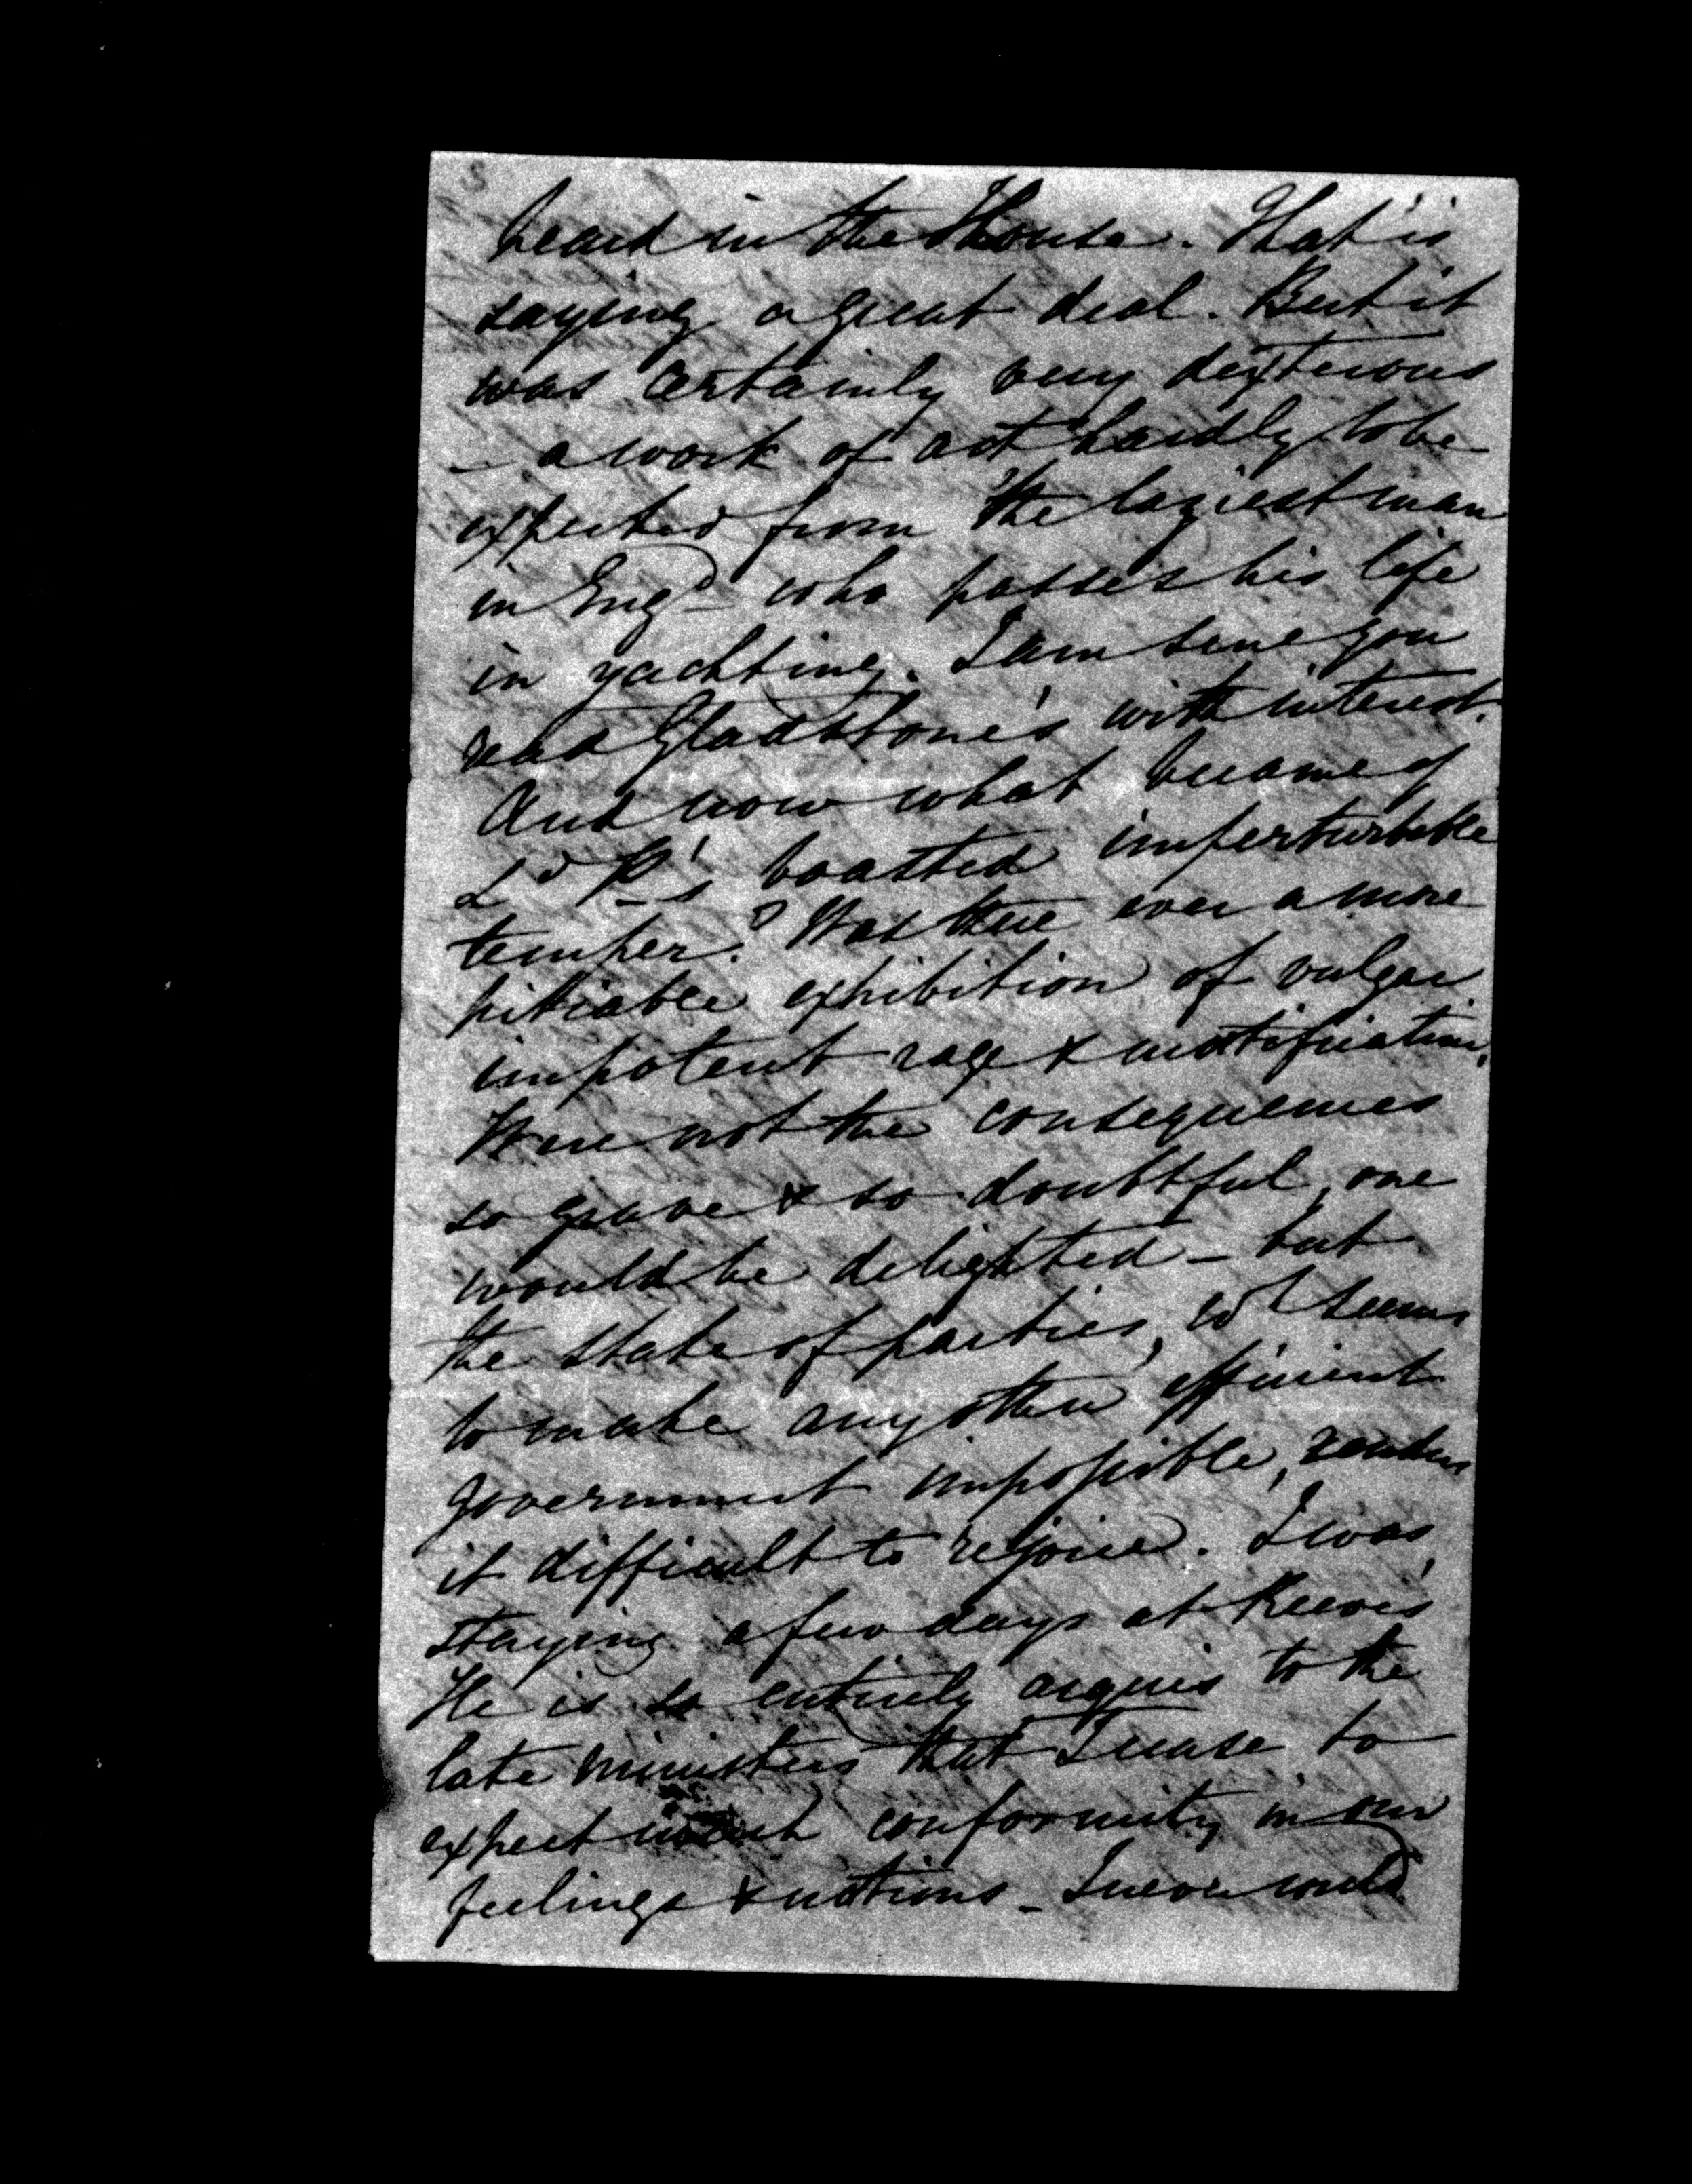 5
heard in the House. That is
saying a great deal. But it
was certainly very dexterous
- a work of art hardly to be
expected from "the laziest man
in Engd" who passes his life
in yachting. I am sure you
read Gladstone's with interest.
And now what became of
Ld P's boasted imperturbable
temper? Was there ever a more
pitiable exhibition of vulgar
impotent rage & mortification.
Were not the consequences
so grave & so doubtful, one
would be delighted - but
the state of parties, wh seems
to make any other efficient
government impossible, renders
it difficult to rejoice. I was
staying a few days at Reeve's
He is so entirely acquis to the
late ministers that I cease to
expect much conformity in our
feelings & notions - I never could